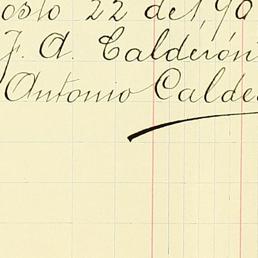 osto 22 de 1,90
J. A. Calderón
Antonio Calde